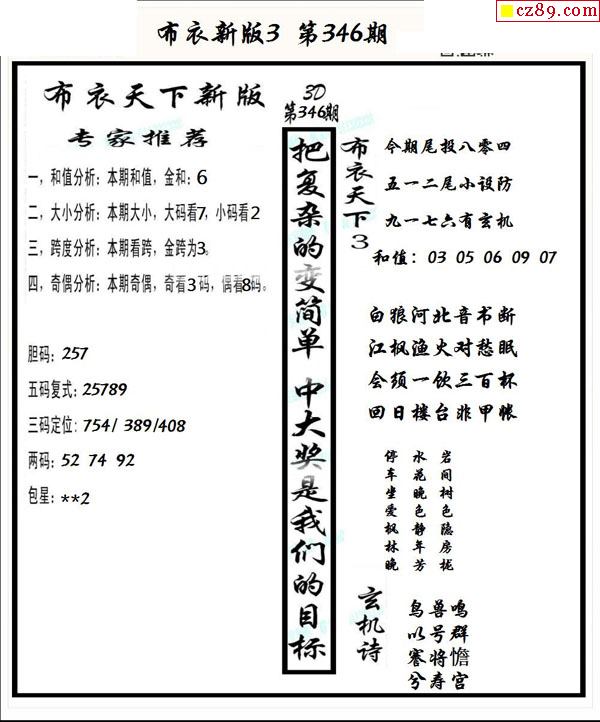 cz89.com
布衣新版3 第346期
布衣天下新版
专家推荐
一，和值分析：本期和值，金和：6
二，大小分析：本期大小，大码看7，小码看2
三，跨度分析：本期看跨，金跨为3。
四，奇偶分析：本期奇偶，奇看3码，偶看8码。
胆码：257
五码复式：25789
三码定位：754/ 389/408
两码：52 74 92
包星：**2
3D
第346期
把复杂的变简单 中大奖是我们的目标
布衣天下3
今期尾投八零四
五一二尾小设防
九一七六有玄机
和值：03 05 06 09 07
白狼河北音书断
江枫渔火对愁眠
会须一饮三百杯
回日楼台非甲帐
停车坐爱枫林晚
水花晚色静年芳
岩间树色隐房栊
玄机诗
鸟兽鸣
以号群
寒将憺
兮寿宫